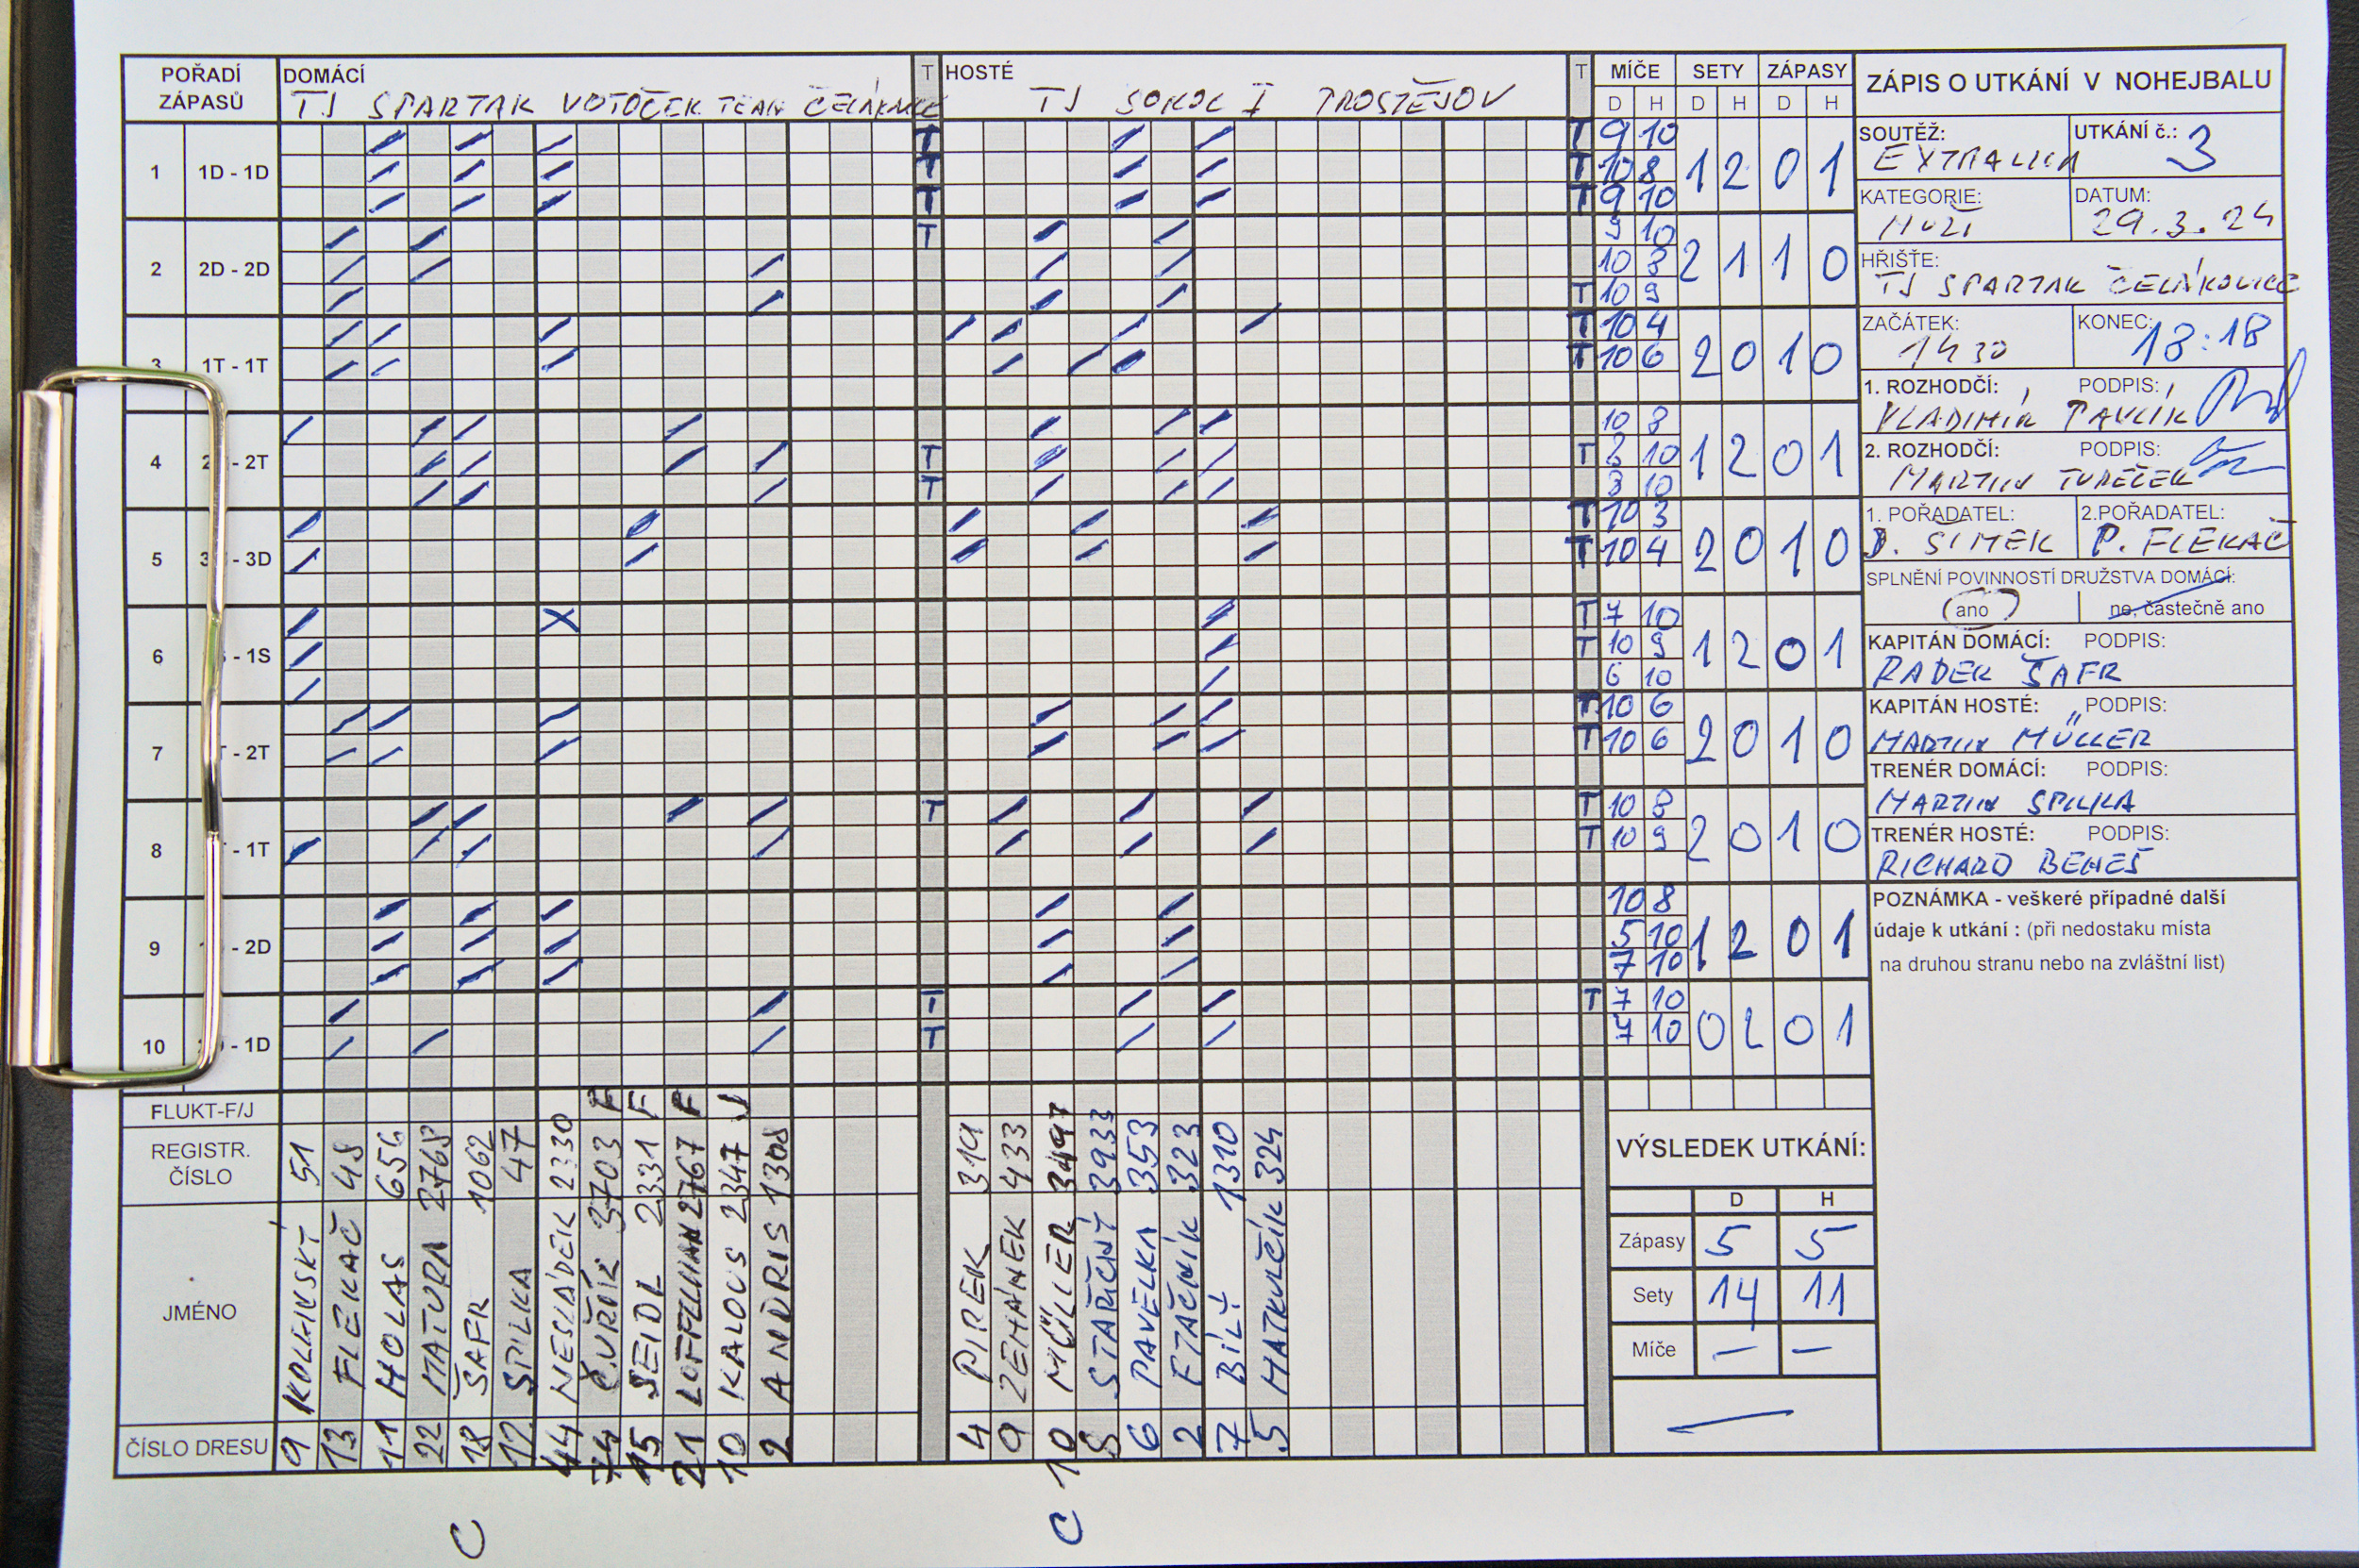 POŘADÍ ZÁPASŮ
DOMÁCÍ T HOSTÉ T
TJ SPARTAK VOTOČEK TEAM TJ SOKOL I PROSTĚJOV
MÍČE SETY ZÁPASY
D H D H D H
1 1D - 1D
T T 9 10
T T 10 8 1 2 0 1
T T 9 10
2 2D - 2D
T 9 10
10 8 2 1 1 0
T 10 9
3 1T - 1T
T 10 4
T 10 6 2 0 1 0
4 - 2T
10 8
T T 2 10 1 2 0 1
T 8 10
5 - 3D
T 10 3
T 10 4 2 0 1 0
6 - 1S
X T 7 10
T 10 9 1 2 0 1
6 10
7 - 2T
T 10 6
T 10 6 2 0 1 0
8 - 1T
T T 10 8
T 10 9 2 0 1 0
9 - 2D
10 8
5 10 1 2 0 1
7 10
10 - 1D
T T 7 10
T 7 10 0 2 0 1
FLUKT-F/J
F F F J
REGISTR. ČÍSLO
51 48 656 2768 1062 47 2330 3703 2331 2767 2347 1308
319 433 3497 3933 353 323 1310 324
JMÉNO
FLEKAČ HOLAS MATURA ŠAFR SPILKA NESLÁDEK SEIDL KALOUS ANDRIS
PIREK ZEMÁNEK MÜLLER STAŘIČNÝ PAVELKA BÍLÝ
ČÍSLO DRESU
9 13 11 22 18 12 44 74 15 21 10 2
4 9 10 8 6 2 7 5
C C
VÝSLEDEK UTKÁNÍ:
D H
Zápasy 5 5
Sety 14 11
Míče – –
ZÁPIS O UTKÁNÍ V NOHEJBALU
SOUTĚŽ: UTKÁNÍ č.:
EXTRALIGA 3
KATEGORIE: DATUM:
MUŽI 29.3.24
HŘIŠTE:
TJ SPARTAK ČELÁKOVICE
ZAČÁTEK: KONEC:
1430 18:18
1. ROZHODČÍ: PODPIS:
VLADIMÍR PAVLÍK
2. ROZHODČÍ: PODPIS:
MARTIN TUREČEK
1. POŘADATEL: 2.POŘADATEL:
ŠIMEK P. FLEKAČ
SPLNĚNÍ POVINNOSTÍ DRUŽSTVA DOMÁCÍ:
ano ne, částečně ano
KAPITÁN DOMÁCÍ: PODPIS:
RADEK ŠAFR
KAPITÁN HOSTÉ: PODPIS:
MARTIN MÜLLER
TRENÉR DOMÁCÍ: PODPIS:
MARTIN SPILKA
TRENÉR HOSTÉ: PODPIS:
RICHARD BENEŠ
POZNÁMKA - veškeré případné další
údaje k utkání : (při nedostaku místa
na druhou stranu nebo na zvláštní list)